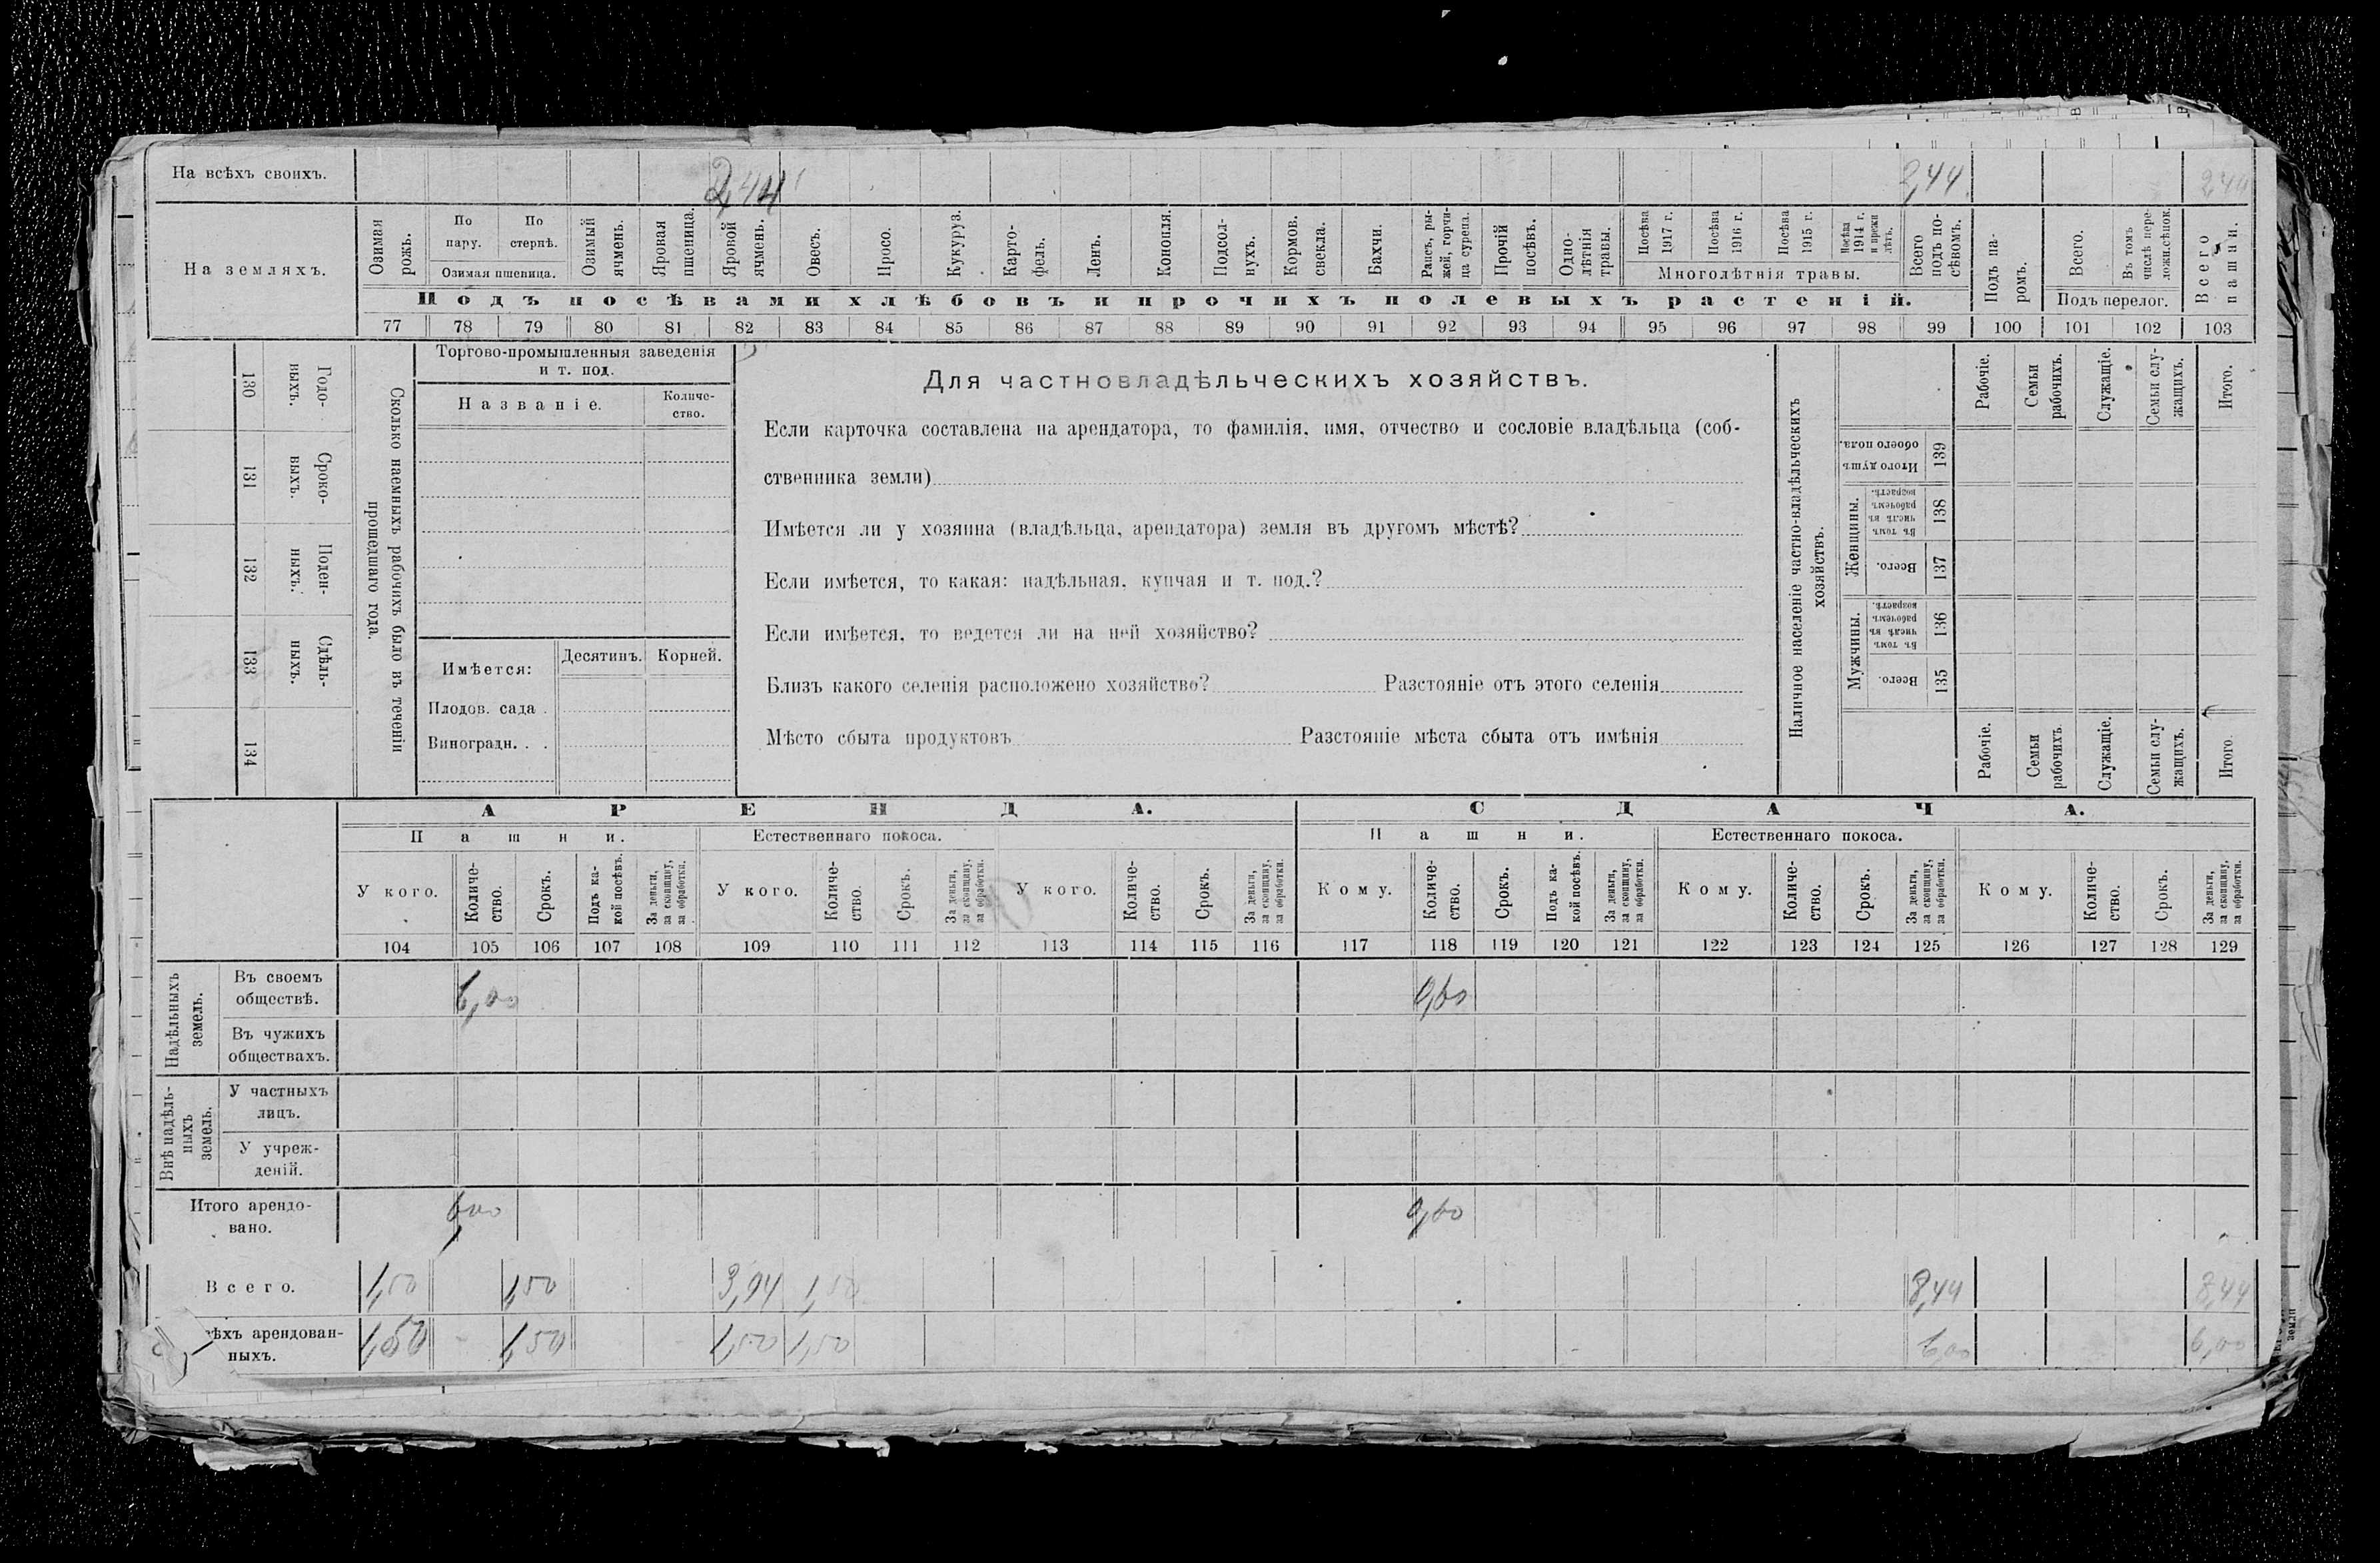 На всѣхъ своихъ. 2,44 2,44 2,44
На земляхъ.
Озимая рожь.
По пару.
По стернѣ.
Озимая пшеница.
Озимый ячмень.
Яровая пшеница.
Яровой ячмень.
Овесъ.
Просо.
Кукуруз.
Карто-фель.
Ленъ.
Конопля.
Подсол-нухъ.
Кормов. свекла.
Бахчи.
Рапсъ, ры-жей, горчи-ца сурепа.
Прочій посѣвъ.
Одно-лѣтнія травы.
Посѣва 1917 г.
Посѣва 1916 г.
Посѣва 1915 г.
Посѣва 1914 г. и прежн лѣтъ.
Многолѣтнія травы.
Всего подъ по-сѣвомъ.
Подъ па-ромъ.
Всего.
Въ томъ числѣ пере-ложн.сѣнок.
Подъ перелог.
Всего пашни.
Подъ посѣвами хлѣбовъ и прочихъ полевыхъ растеній.
77 78 79 80 81 82 83 84 85 86 87 88 89 90 91 92 93 94 95 96 97 98 99 100 101 102 103
Сколько наемныхъ рабочихъ было въ теченіи
прошедшаго года.
Годо-выхъ. 130
Сроко-выхъ. 131
Поден-ныхъ. 132
Сдѣль-ныхъ. 133
134
Торгово-промышленныя заведенія
и т. под.
Названіе. Количе-ство.
Имѣется: Десятинъ. Корней.
Плодов. сада .
Виноградн. . .
Для частновладѣльческихъ хозяйствъ.
Если карточка составлена на арендатора, то фамилія, имя, отчество и сословіе владѣльца (соб-
ственника земли)
Имѣется ли у хозяина (владѣльца, арендатора) земля въ другомъ мѣстѣ?
Если имѣется, то какая: надѣльная, купчая и т. под.?
Если имѣется, то ведется ли на ней хозяйство?
Близъ какого селенія расположено хозяйство? Разстояніе отъ этого селенія
Мѣсто сбыта продуктовъ Разстояніе мѣста сбыта отъ имѣнія
Наличное населеніе частно-владѣльческихъ
хозяйствъ.
Рабочіе. Семьи рабочихъ. Служащіе. Семьи слу-жащихъ. Итого.
Итого душъ обоего пола. 139
Женщины.
Въ томъ числѣ въ рабочемъ возрастѣ. 138
Всего. 137
Мужчины.
Въ томъ числѣ въ рабочемъ возрастѣ. 136
Всего. 135
Рабочіе. Семьи рабочихъ Служащіе. Семьи слу-жащихъ. Итого.
АРЕНДА. СДАЧА.
Пашни. Естественнаго покоса. Пашни. Естественнаго покоса.
У кого. Количе-ство. Срокъ. Подъ ка-кой посѣвъ. За деньги, за скопщину, за обработки.
У кого. Количе-ство. Срокъ. За деньги, за скопщину, за обработки.
У кого. Количе-ство. Срокъ. За деньги, за скопщину, за обработки.
Кому. Количе-ство. Срокъ. Подъ ка-кой посѣвъ. За деньги, за скопщину, за обработки.
Кому. Количе-ство. Срокъ. За деньги, за скопщину, за обработки.
Кому. Количе-ство. Срокъ. За деньги, за скопщину, за обработки.
104 105 106 107 108 109 110 111 112 113 114 115 116 117 118 119 120 121 122 123 124 125 126 127 128 129
Надѣльныхъ земель.
Въ своемъ обществѣ. 6,00 0,60
Въ чужихъ обществахъ.
Внѣ надѣль-ныхъ земель.
У частныхъ лицъ.
У учреж-деній.
Итого арендо-вано. 6,00 0,60
Всего. 1,50 1,50 3,94 1,50 8,44 8,44
ѣхъ арендован-ныхъ. 1,50 1,50 1,50 1,50 6,00 6,00
земли